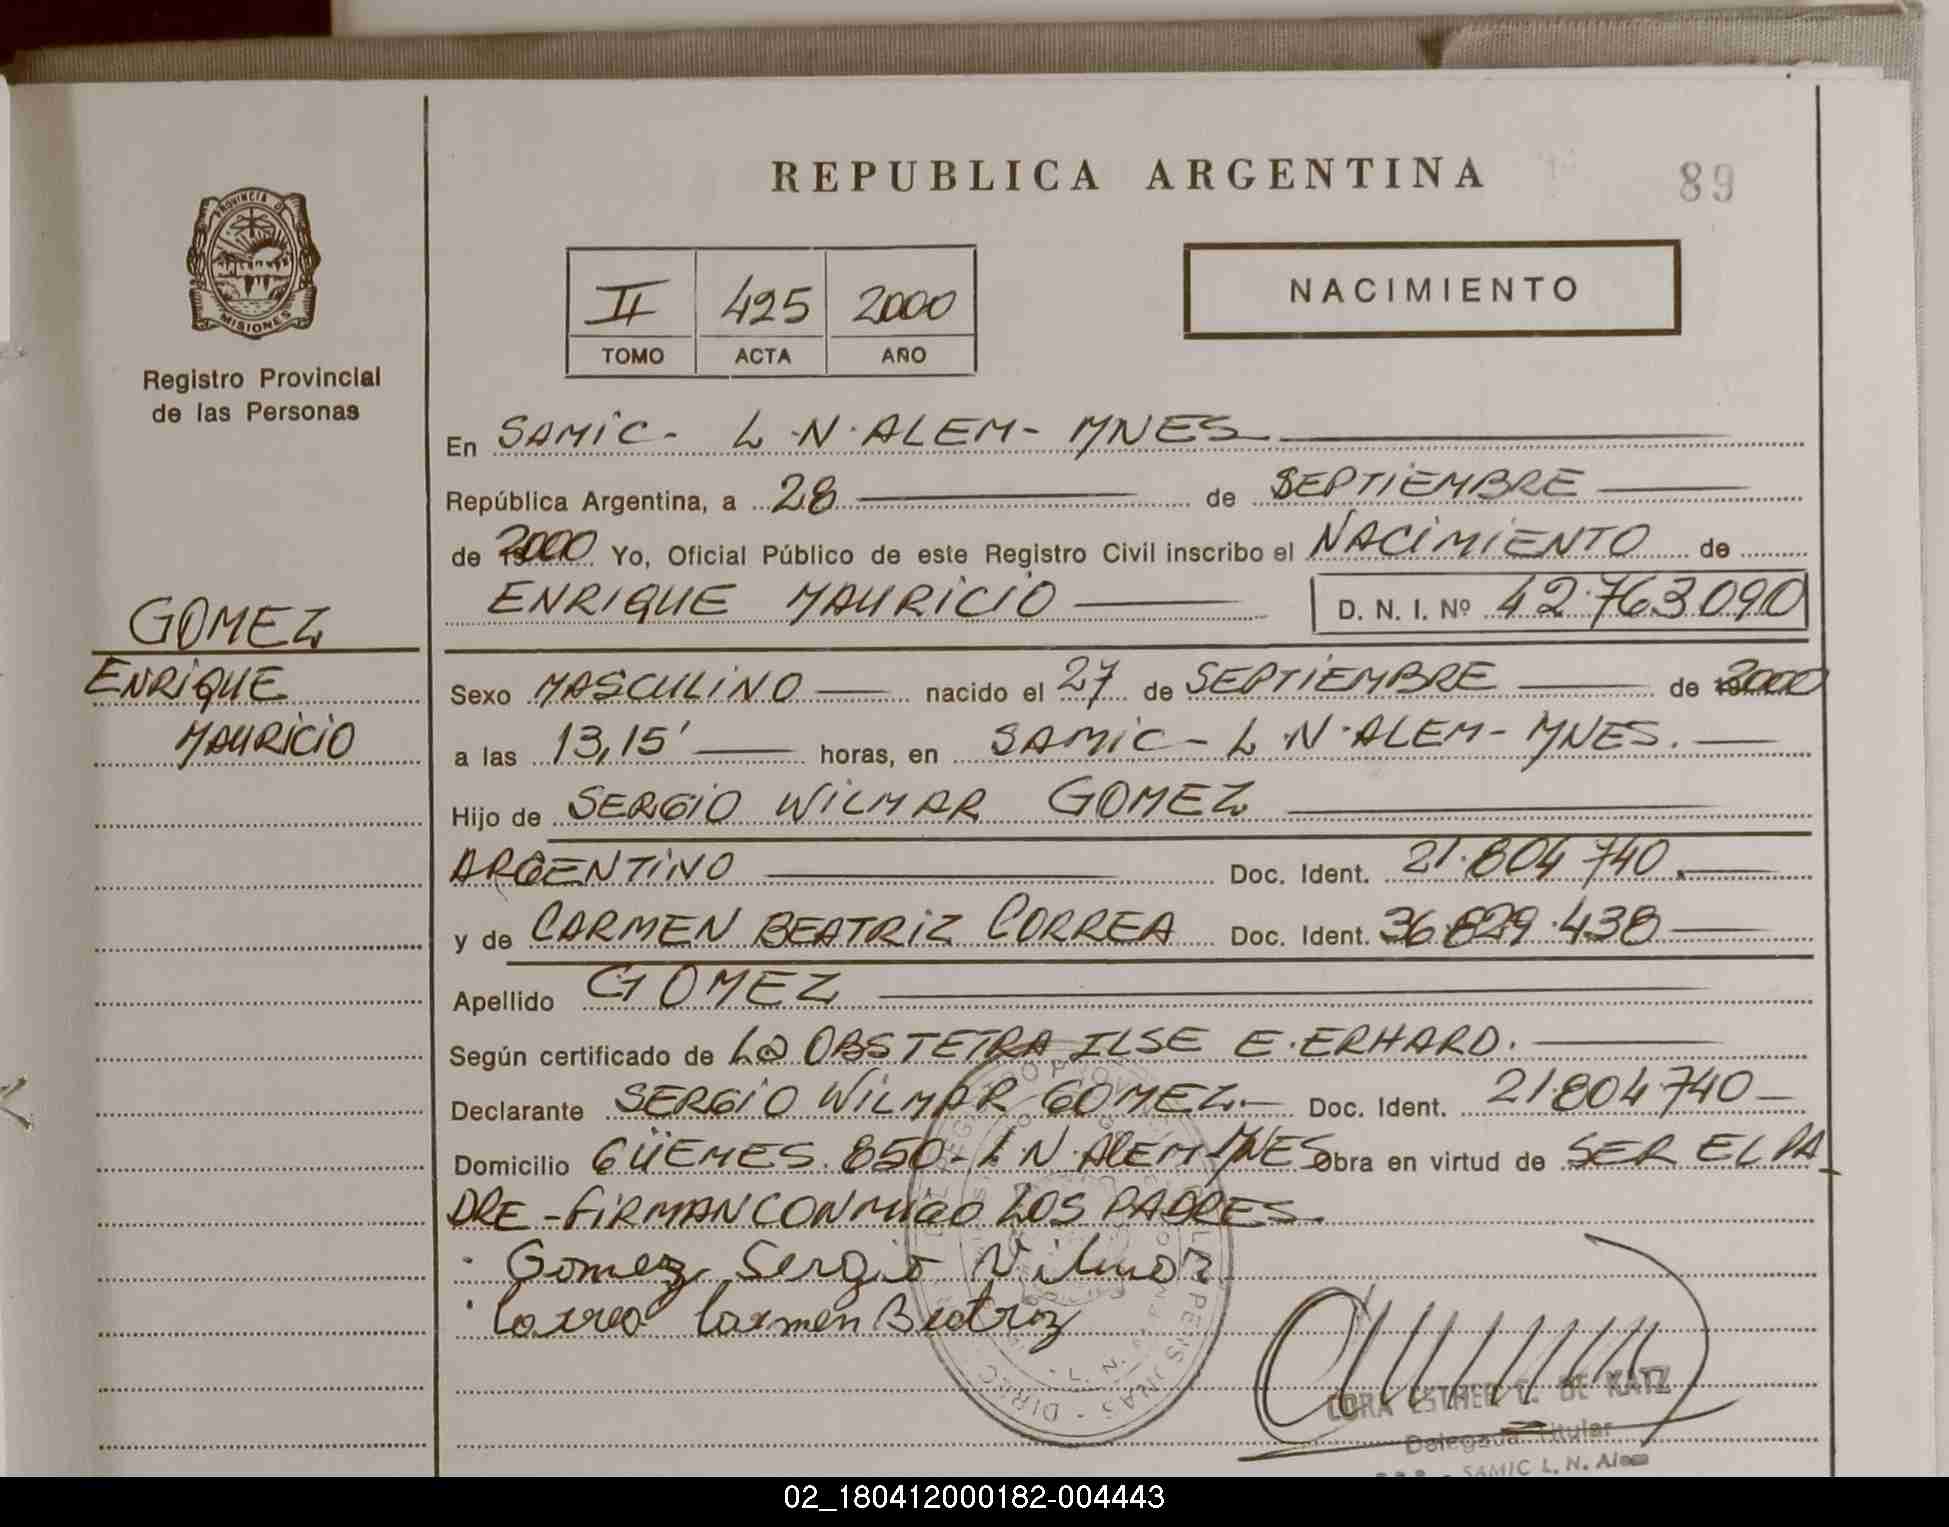 REPUBLICA ARGENTINA
89
PROVINCIA DE
MISIONES
Registro Provincial
de las Personas
II 425 2000
TOMO ACTA AÑO
NACIMIENTO
En SAMIC - L.N. ALEM - MNES
República Argentina, a 28 de SEPTIEMBRE
de 2000 Yo, Oficial Público de este Registro Civil inscribo el NACIMIENTO de
ENRIQUE MAURICIO D. N. I. Nº 42.763.090
GOMEZ
ENRIQUE
MAURICIO
Sexo MASCULINO nacido el 27 de SEPTIEMBRE de 2000
a las 13,15' horas, en SAMIC - L.N. ALEM - MNES.
Hijo de SERGIO WILMAR GOMEZ
ARGENTINO Doc. Ident. 21.804.740.
y de CARMEN BEATRIZ CORREA Doc. Ident. 36.829.438
Apellido GOMEZ
Según certificado de La OBSTETRA ILSE E. ERHARD.
Declarante SERGIO WILMAR GOMEZ. Doc. Ident. 21.804.740
Domicilio GÜEMES. 850 - L N. ALEM MNES Obra en virtud de SER EL PA
DRE - FIRMAN CONMIGO LOS PADRES.
Gomez Sergio Vilmar
Correa Carmen Beatriz
CORA ESTHER DE KATZ
Delegada Titular
SAMIC L. N. Alem
02_180412000182-004443